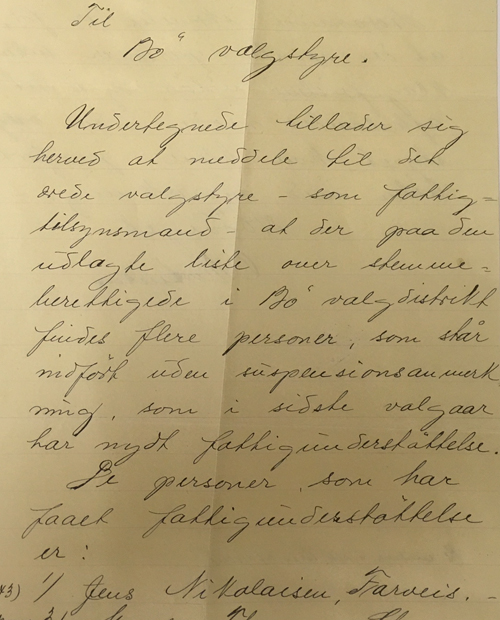 Til
Bö valgstyre.
Undertegnede tillader sig
herved at meddele til det
ærede valgstyre - som fattig=
tilsynsmand - at der paa den
udlagte liste over stemme=
berettigede i Bö valgdistrikt
findes flere personer, som står
indfört uden suspensionsanmerk
ning, som i sidste valgaar
har nydt fattigunderstöttelse.
De personer, som har
faaet fattigunderstöttelse
er:
1/ Jens Nikolaisen, Farveis. -